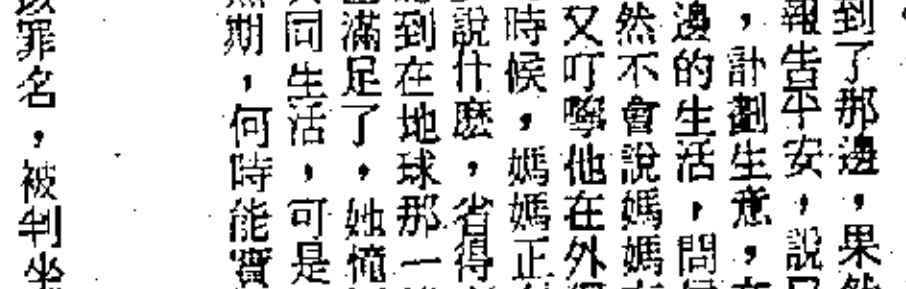 到了那邊，果然
報告平安，說
，計劃生意，在
邊的生活，問
然不會說媽媽
又叮嚀他在外
時候，媽媽正
說什麼，省得
到在地球那一
滿足了，她憧
同生活，可是
期，何時能實
罪名，被判坐